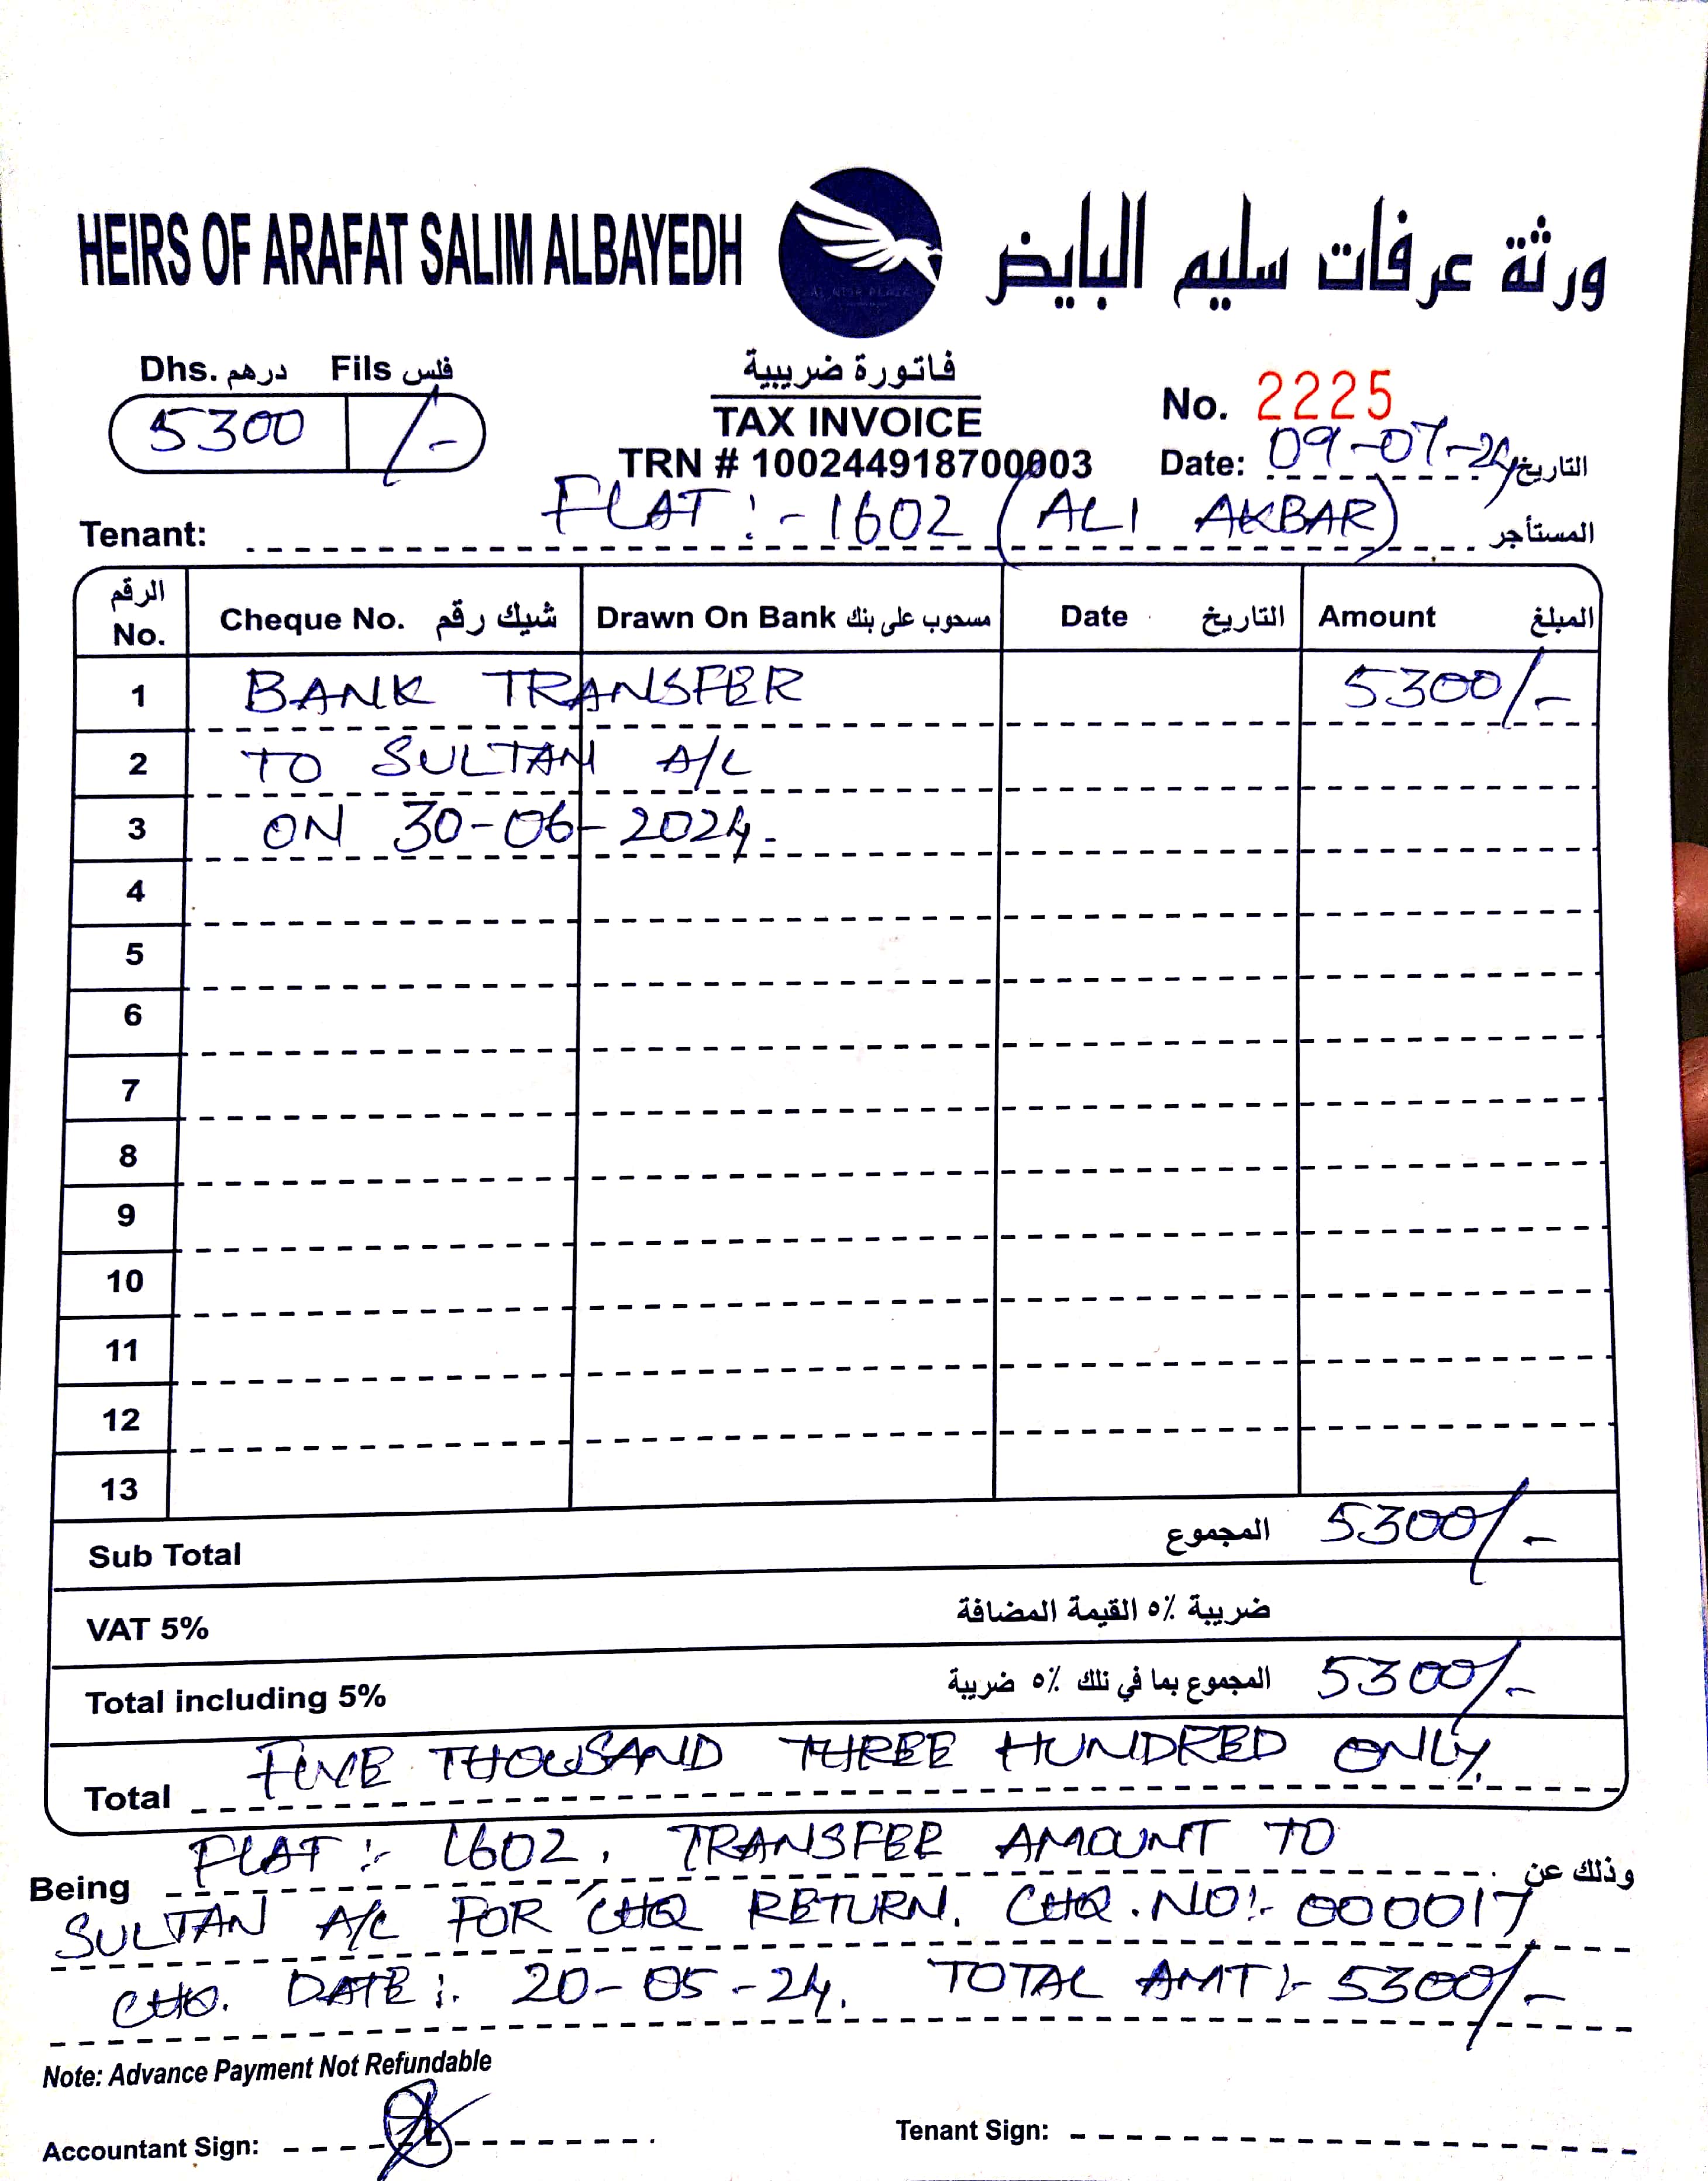 HEIRS OF ARAFAT SALIM ALBAYEDH ورثة عرفات سليم البايض
Dhs. درهم Fils فلس
5300 /-
فاتورة ضريبية
TAX INVOICE
TRN # 100244918700003
No. 2225
Date: 09-07-24 التاريخ
Tenant: FLAT:-1602 (ALI AKBAR) المستأجر
الرقم No. Cheque No. شيك رقم Drawn On Bank مسحوب على بنك Date التاريخ Amount المبلغ
1 BANK TRANSFER 5300/-
2 TO SULTAN A/C
3 ON 30-06-2024.
4
5
6
7
8
9
10
11
12
13
Sub Total المجموع 5300/-
VAT 5% ضريبة ٥٪ القيمة المضافة
Total including 5% المجموع بما في تلك ٥٪ ضريبة 5300/-
Total FIVE THOUSAND THREE HUNDRED ONLY.
Being FLAT:- 1602, TRANSFER AMOUNT TO وذلك عن
SULTAN A/C FOR CHQ RETURN. CHQ.NO:- 000017
CHQ. DATE:. 20-05-24. TOTAL AMT:- 5300/-
Note: Advance Payment Not Refundable
Accountant Sign: Tenant Sign: